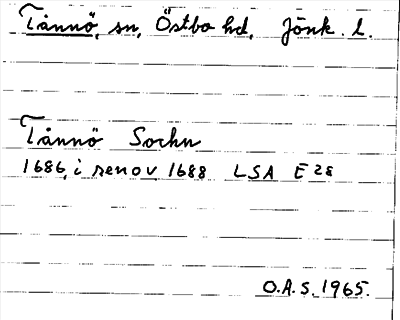 Tånnö, sn, Östbo hd, Jönk. l.
Tånnö Sochn
1686, i renov 1688 LSA E 28
O.A.S. 1965.